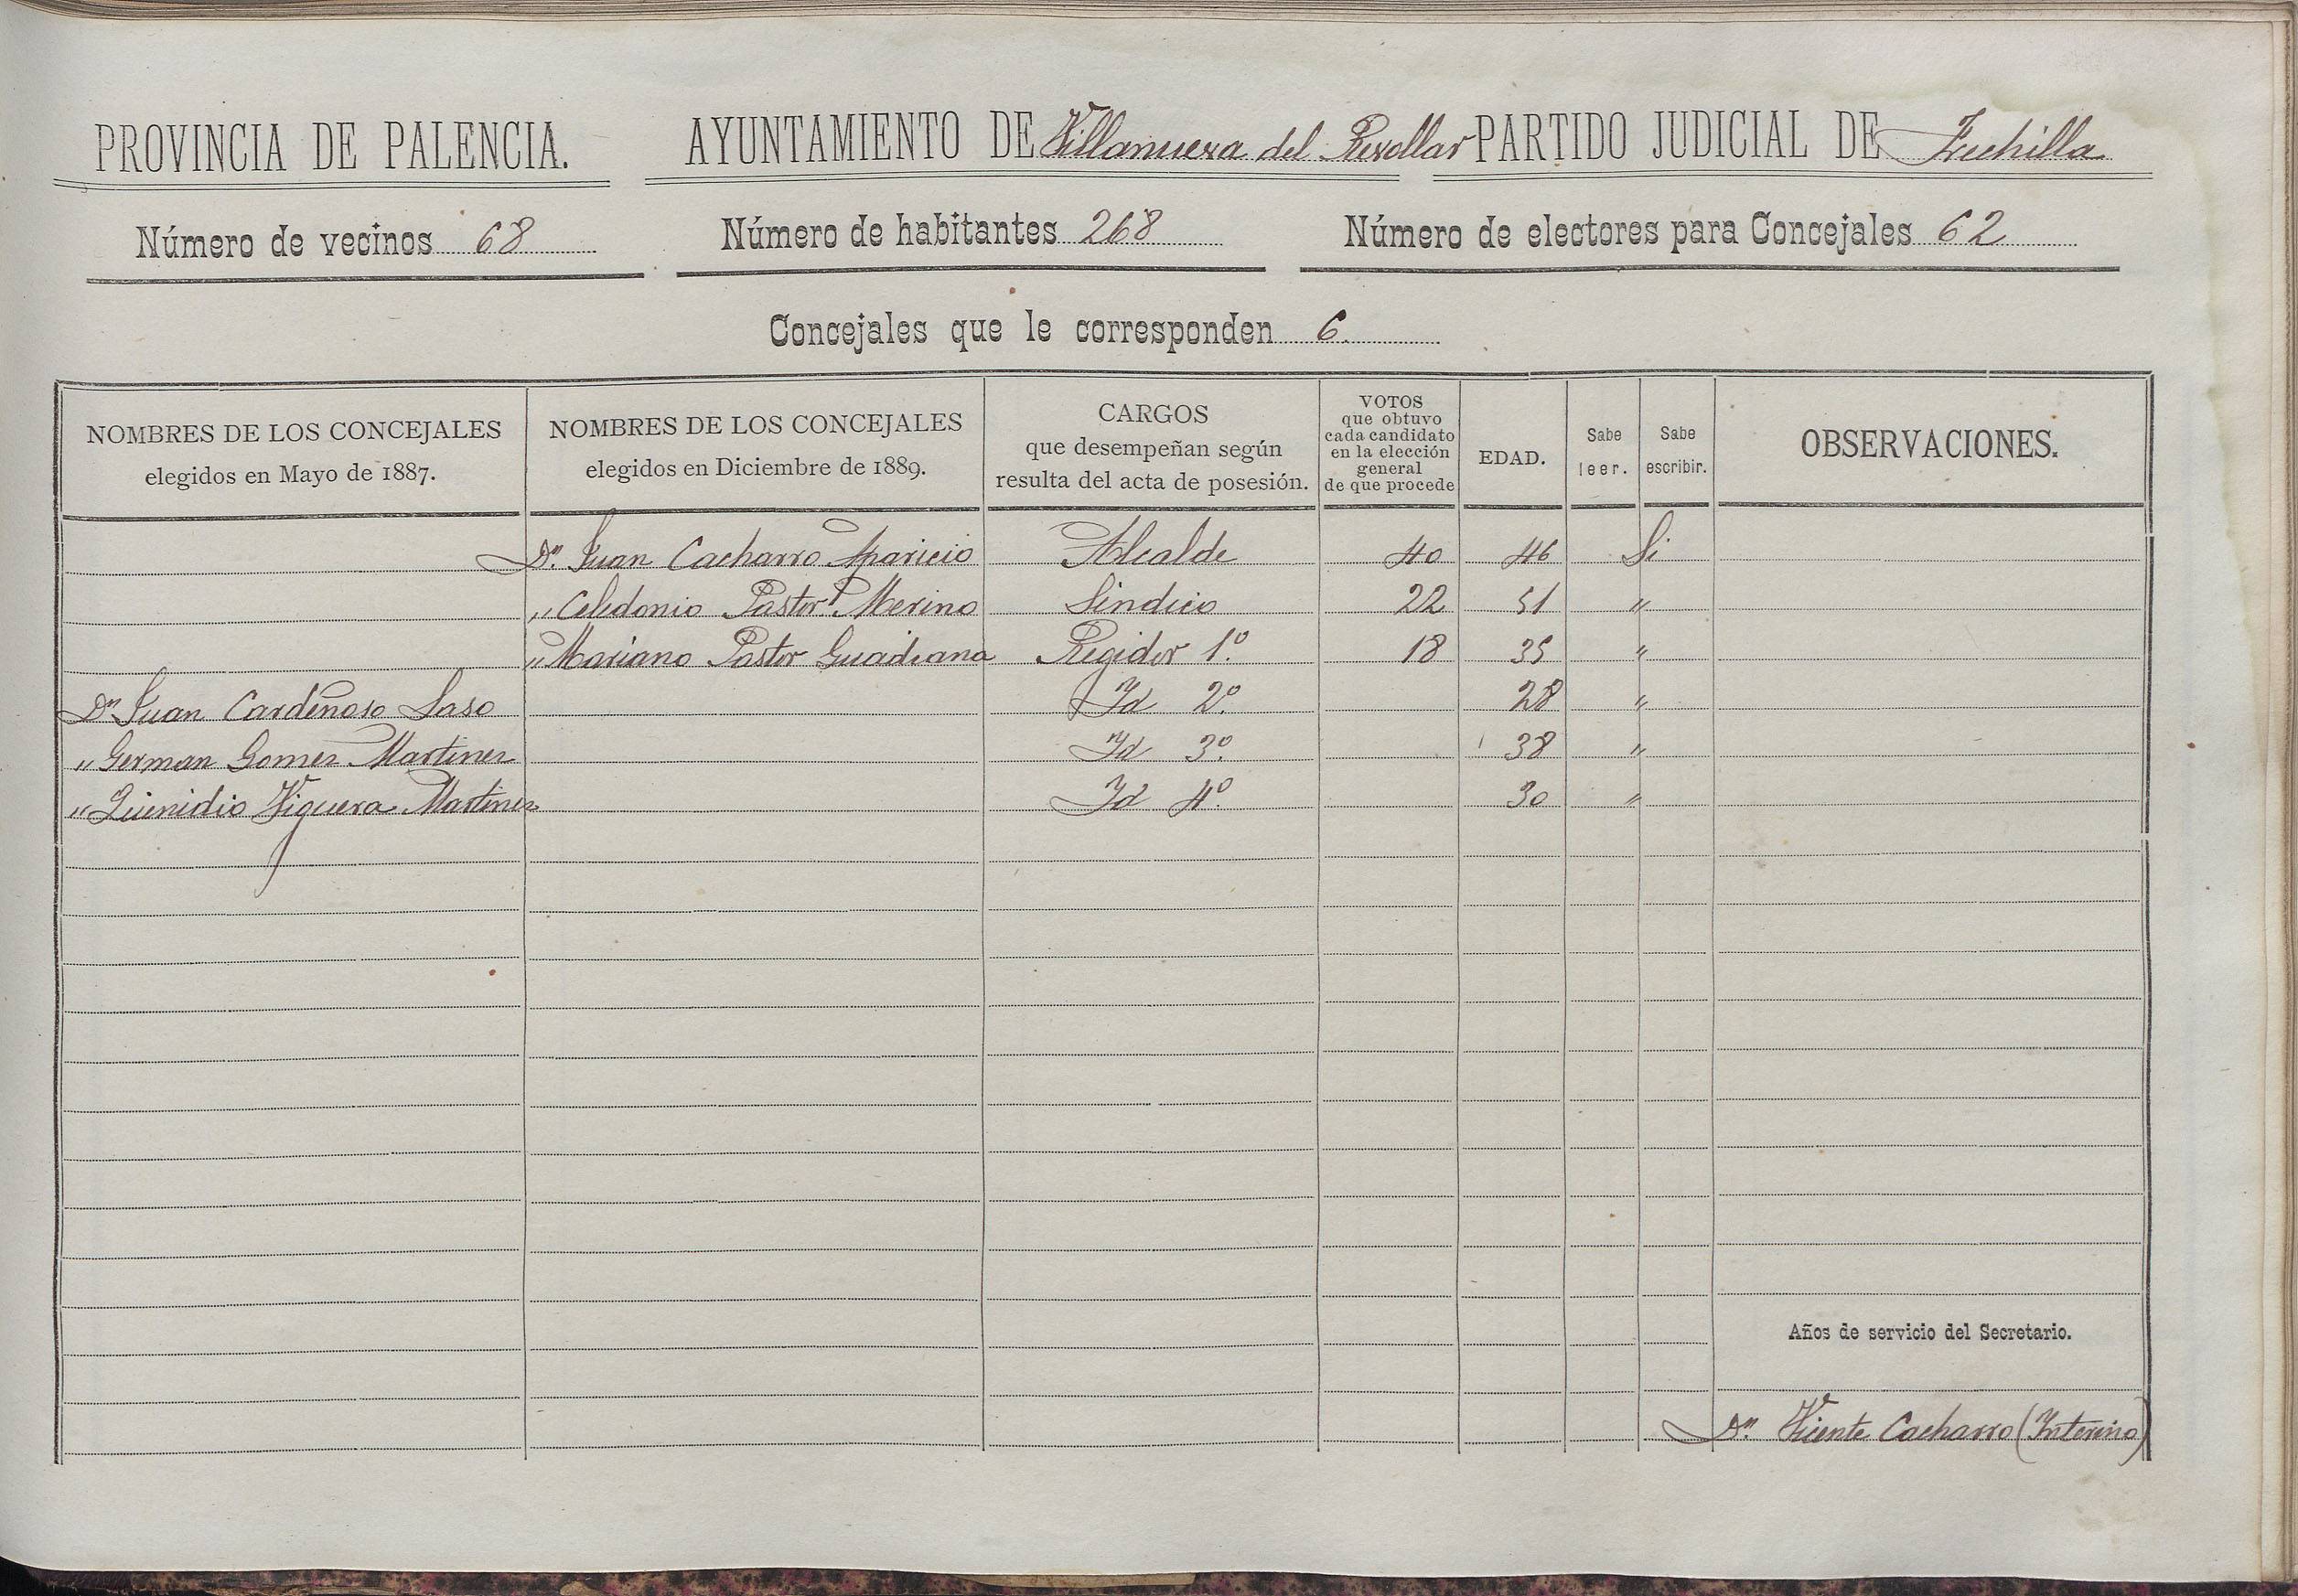 PROVINCIA DE PALENCIA. AYUNTAMIENTO DE Villanueva del Revollar PARTIDO JUDICIAL DE Frechilla
Número de vecinos 68 Número de habitantes 268 Número de electores para Concejales 62
Concejales que le corresponden 6.
NOMBRES DE LOS CONCEJALES elegidos en Mayo de 1887.
NOMBRES DE LOS CONCEJALES elegidos en Diciembre de 1889.
CARGOS que desempeñan según resulta del acta de posesión.
VOTOS que obtuvo cada candidato en la elección general de que procede
EDAD.
Sabe leer.
Sabe escribir.
OBSERVACIONES.
Dn. Juan Cacharro Aparicio Alcalde 40 46 Si
" Celedonio Pastor Merino Sindico 22 51 "
" Mariano Pastor Guadiana Regidor 1º. 18 35 "
Dn Juan Cardeñoso Laso Id 2º. 28 "
" German Gomez Martinez Id 3º. 38 "
" Viguera Martinez Id 4º. 30 "
Años de servicio del Secretario.
Dn. Vicente Cacharro (Interino)